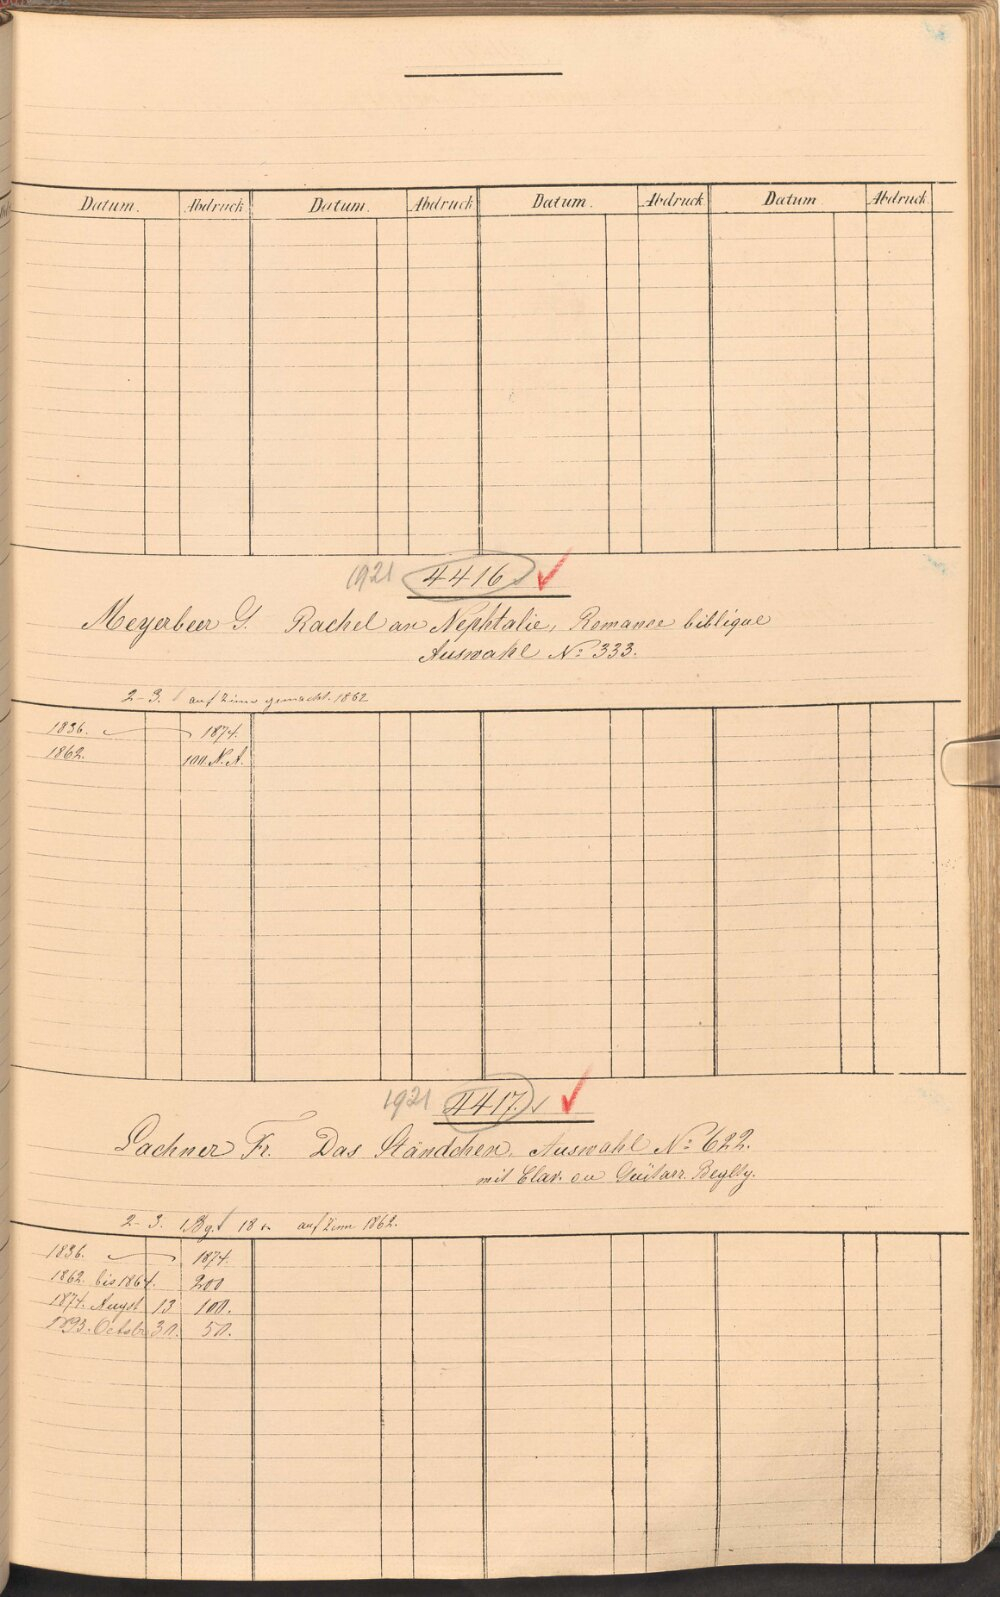 Datum. Abdruck Datum. Abdruck Datum. Abdruck Datum Abdruck
1921 4416
Meyerbeer G. Rachel an Nephtalie, Romance biblique
Auswahl No 333.
2-3. auf Zinn gemacht. 1862
1836. 1874.
1862. 100. N. A.
1921 4417.
Lachner Fr. Das Ständchen, Auswahl No 622.
mit Clav. ou Guitarr. Begltg.
2-3. 1 Bg. 18 auf Zinn 1862.
1836. 1874.
1862. bis 1864. 200
1874. Augst 13 100.
1893. Octob 30. 50.